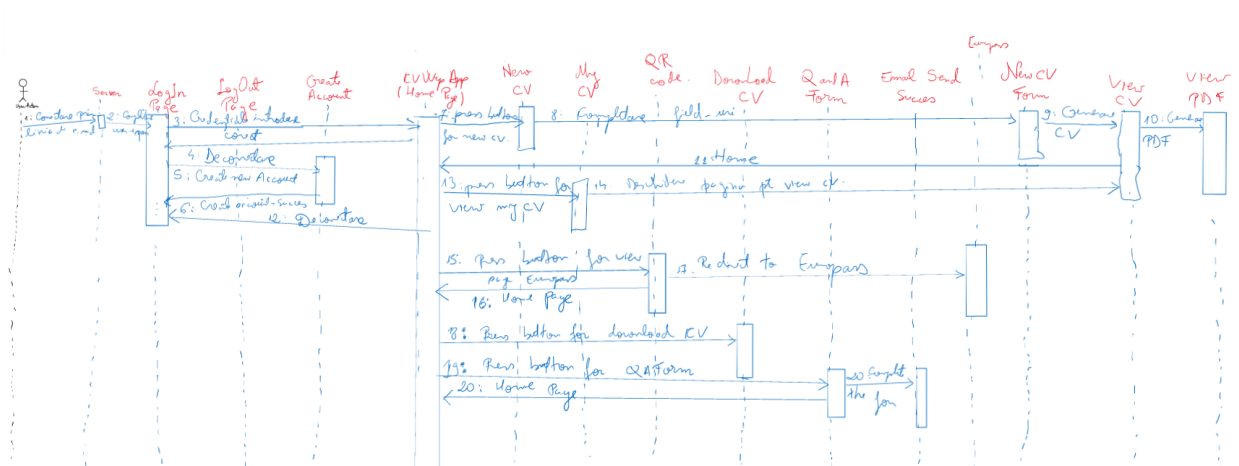 Server
LogIn
Page
LogOut
Page
Create
Account
CVWepApp
(Home
Page)
New
CV
My
CV
QR
code.
Download
CV
QandA
Form
Email Send
Succes
Europass
New CV
Form
View
CV
View
PDF
1: Conectare prin
2:
3: Credentials introduse
corect
4: Deconectare
5: Create new Account
6: Creat account-succes
12: Deconectare
7. press button
for new cv.
8: Completare field-uri
9: Generare
CV
10: Generare
PDF
11: Home
13: press button for
view my CV
14 Deschidere pagina pt view cv.
15: Press button for view
pag Europass
16: Home Page
17: Redirect to Europass
8: Press button for download CV
19: Press button for QAForm
20: Home Page
20 Complet
the form